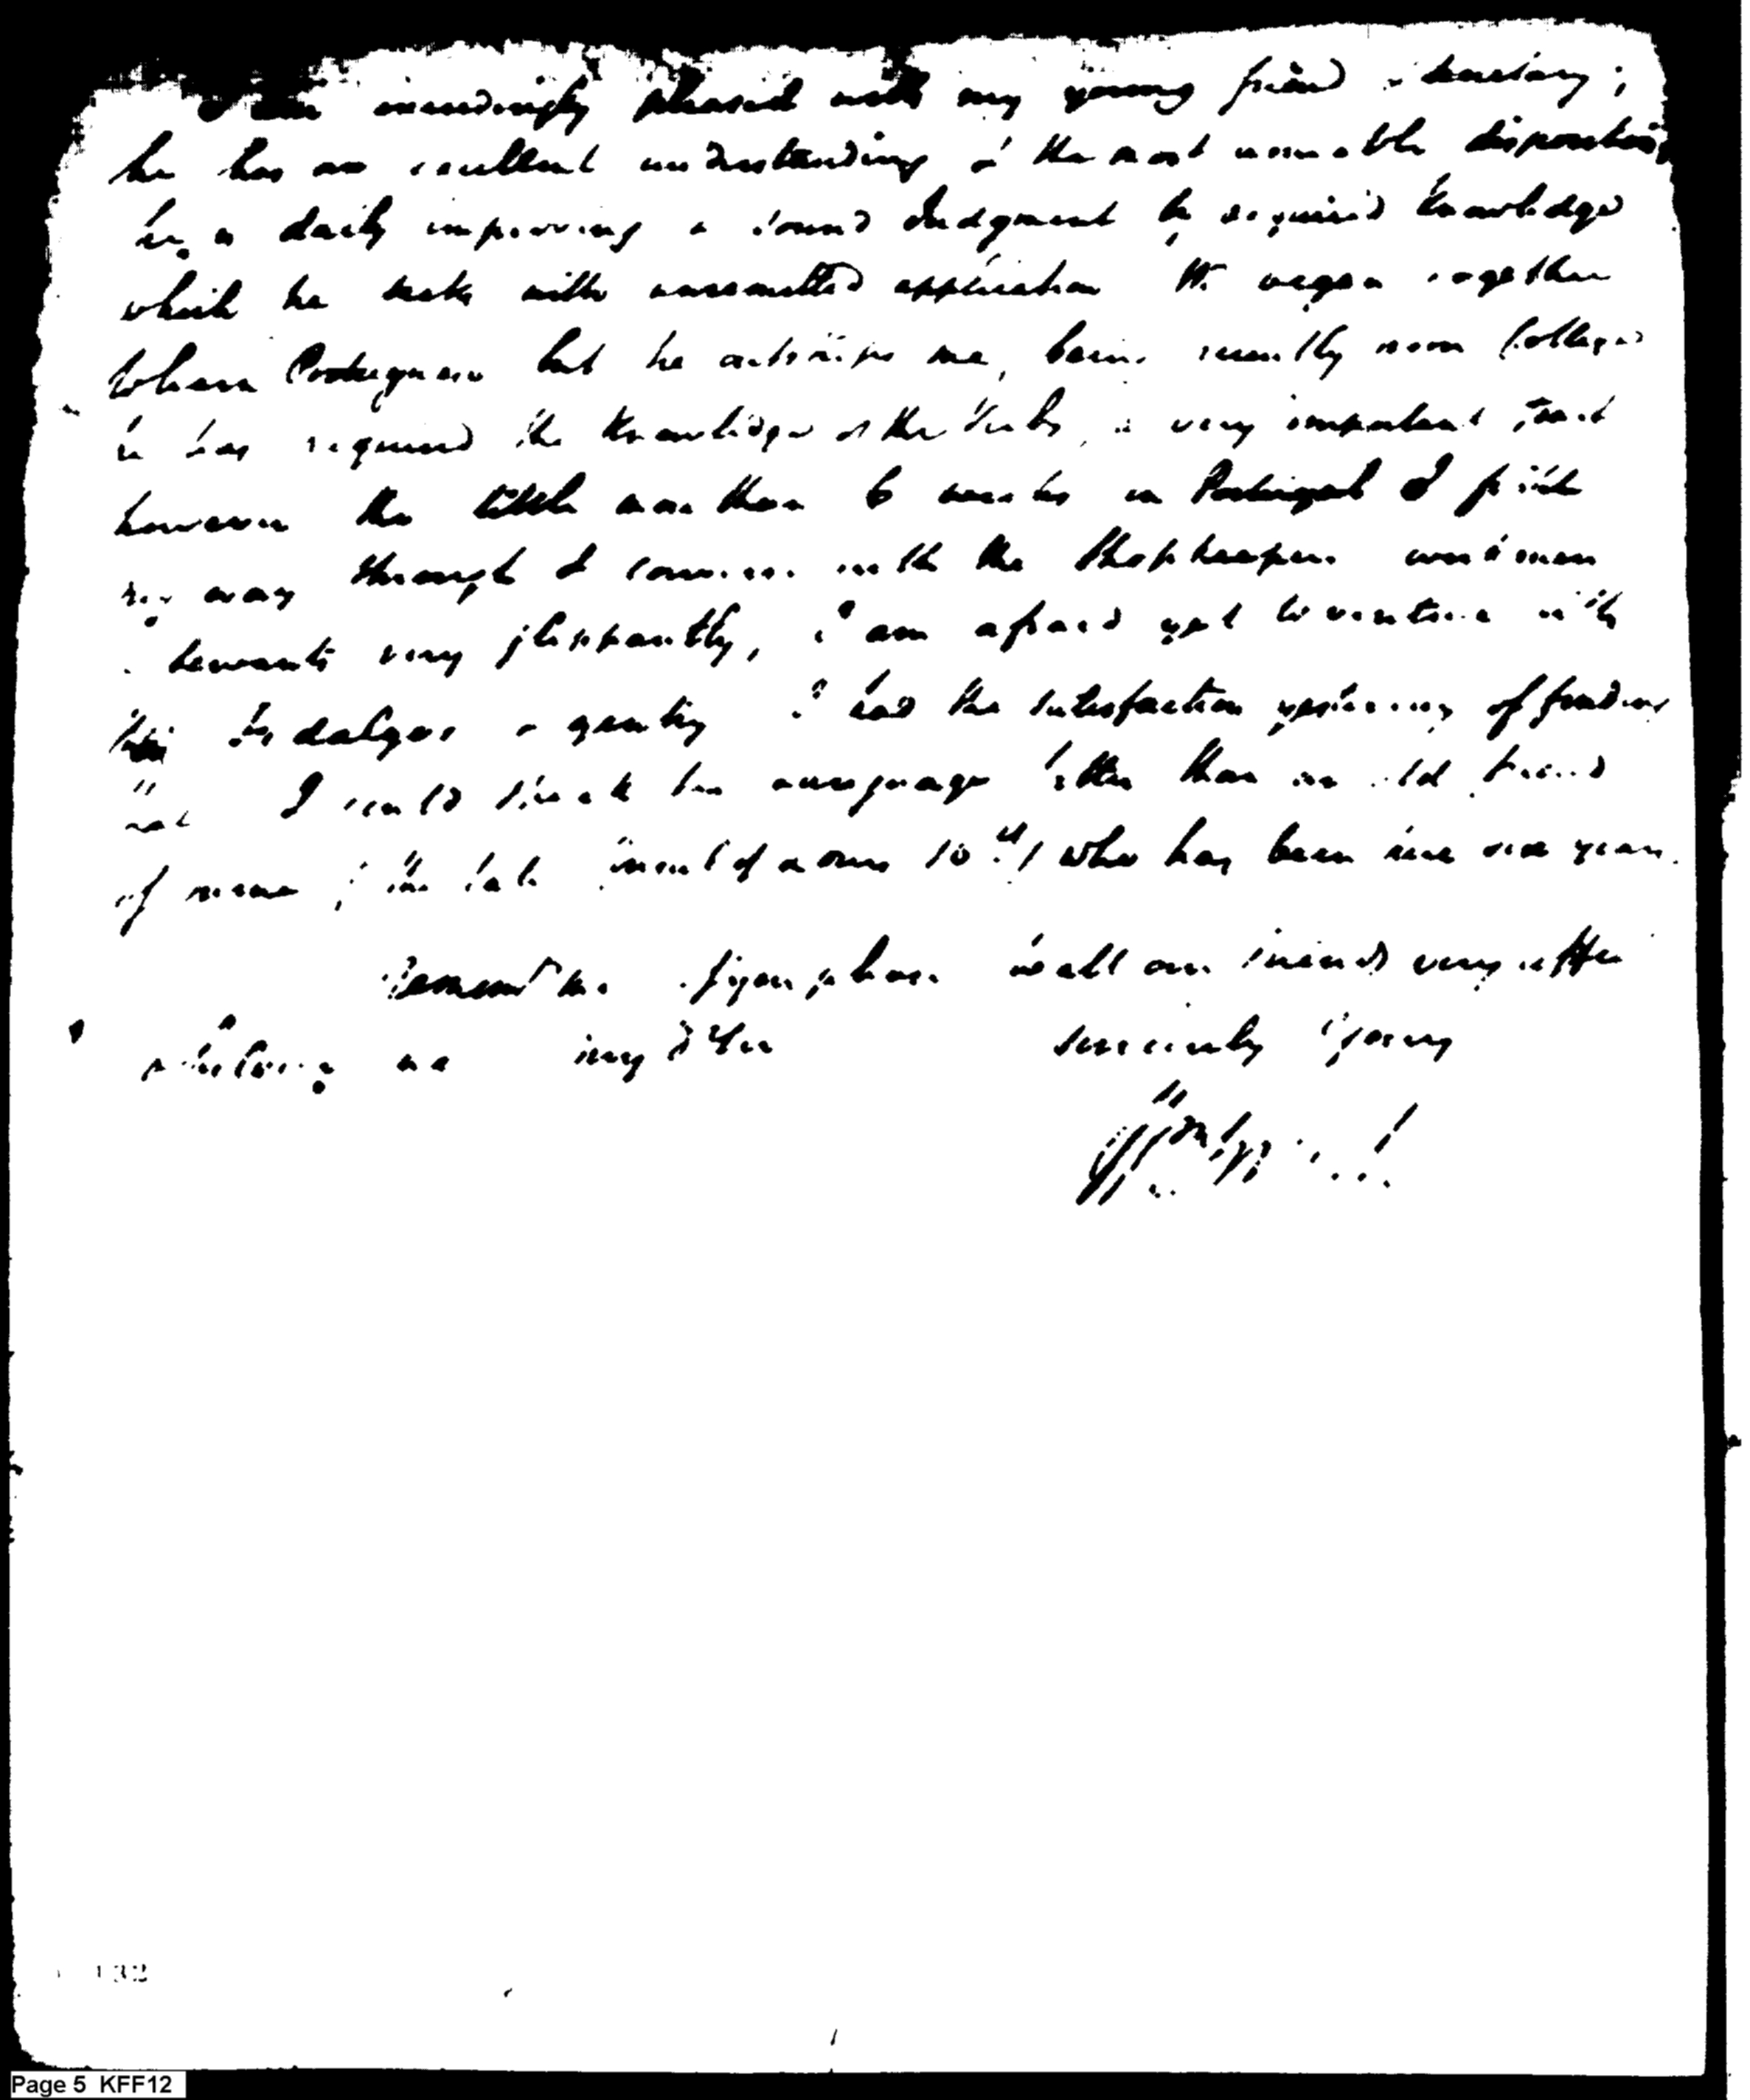 I am exceedingly pleased with my young friend
he has an excellent understanding & the most amiable disposition
is daily improving a sound Judgment by acquired knowledge
which he seeks with unremitted application We began together
to learn Portuguese but he outstrips me, being recently from College
he has acquired the knowledge of the Verbs, a very important point
however tho little more than 6 weeks in Portugal I find
my way through & converse with the Shopkeepers
& servants very flippantly, I am afraid yet to venture with
the fidalgos & gentry I had the satisfaction yesterday of finding
that I could speak the language better than an old friend
of mine, the late of 10th who has been here one year.
Remember me if you please to all our friends very
& believe me my Dr Sir sincerely Yours
132
Page 5 KFF12